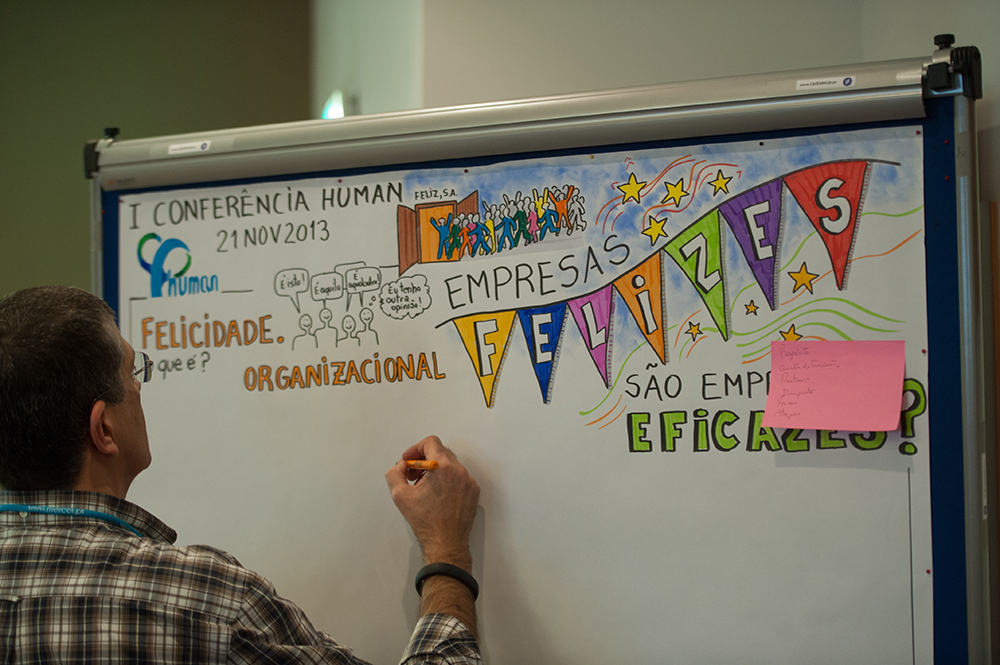 I CONFERÊNCIA HUMAN
21 NOV 2013
human
FELIZ, S.A.
É isto!
É aquilo
É aqueloutro
Eu tenho
outra
opinião!
FELICIDADE.
O que é?
ORGANIZACIONAL
EMPRESAS
FELIZES
SÃO EMPR
EFICAZES?